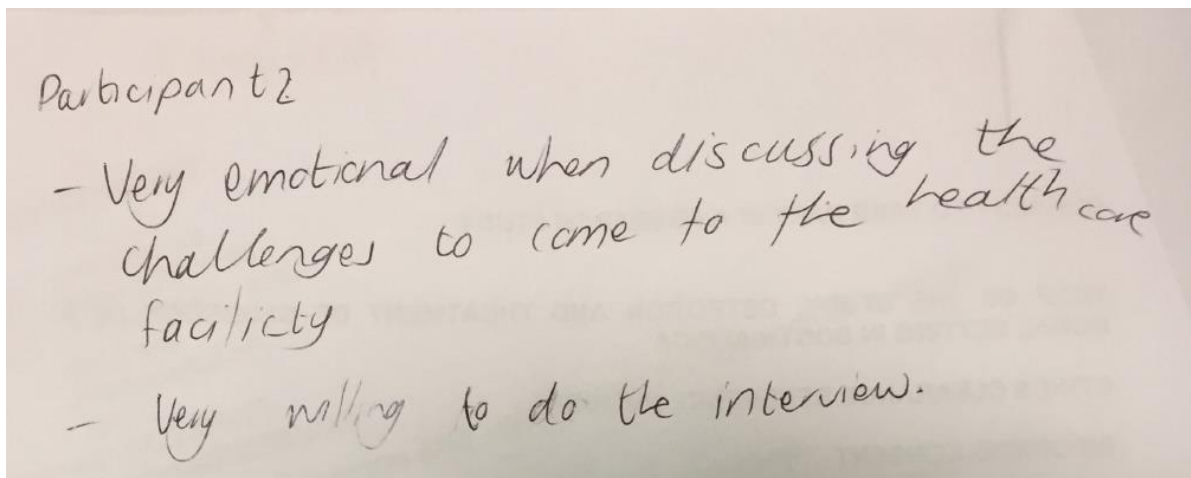 Participant 2
- Very emotional when discussing the
challenges to come to the healthcare
facilicty
- Very willing to do the interview.